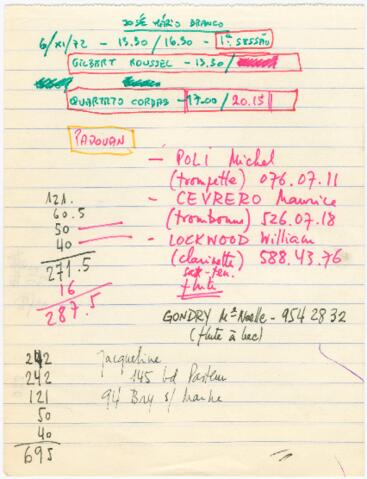 JOSÉ MÁRIO BRANCO
6/XI/72 - 13.30/16.30 - 1ª SESSÃO
GILBERT ROUSSEL - 13.30/
QUARTETO CORDAS - 17.00/20.15
PADOVAN
- POLI Michel
(trompette) 076.07.11
- CEVRERO Maurice
(trombone) 526.07.18
- LOCKWOOD William
(clarinette) 588.43.76
sax-ten.
flute
121.
60.5
50
40
271.5
16
287.5
GONDRY Mᵉ Noelle - 954 28 32
(flute à bec)
242
242
121
50
40
695
Jacqueline
145 bd Pasteur
94 Bry s/ Marne